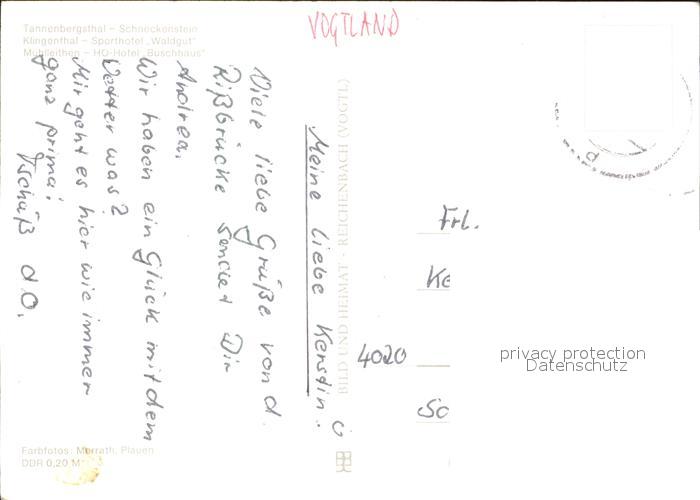 VOGTLAND
Tannenbergsthal – Schneckenstein
Klingenthal – Sporthotel „Waldgut"
Mühlleithen – HO-Hotel „Buschhaus"
Meine liebe Kerstin!
Viele liebe Grüße von d.
sendet Dir
Andrea.
Wir haben ein Glück mit dem
Wetter was?
Mir geht es hier wie immer
ganz prima!
Tschüß d.O.
BILD UND HEIMAT · REICHENBACH (VOGTL)
Frl.
Ke
4020
So
privacy protection
Datenschutz
Farbfotos: Morrath, Plauen
DDR 0,20 M